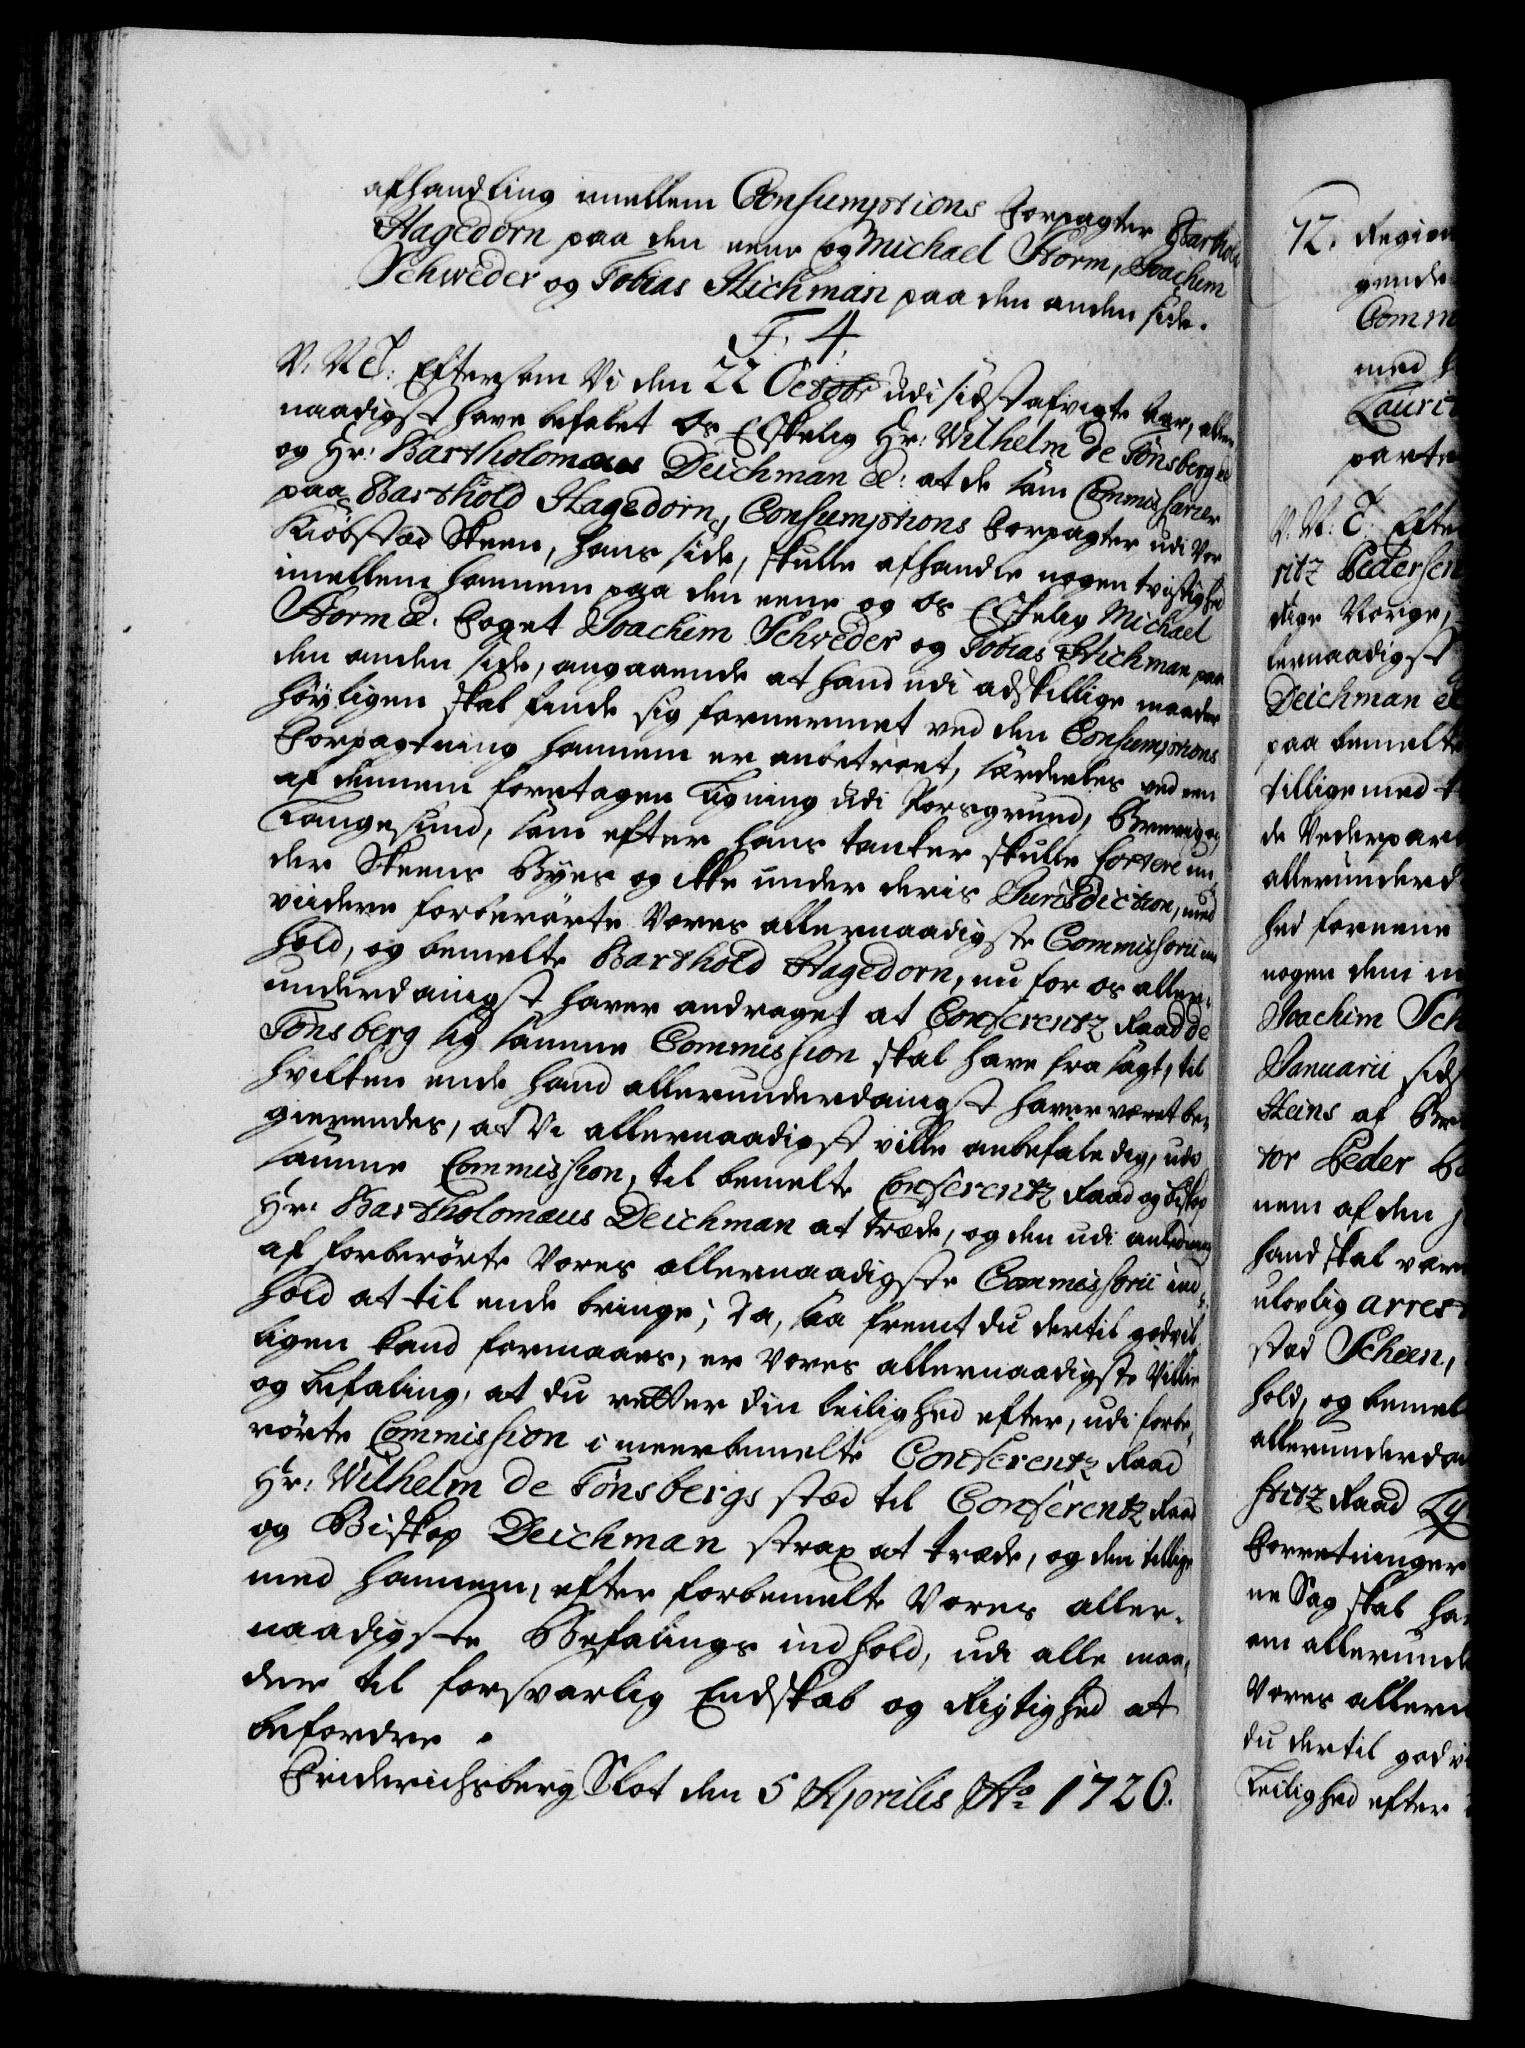 afhandling imellem Consumptions Forpagter Barthold
Hagedorn paa den eene og Michael Storm, Joachim
Schweder og Tobias Stichman paa den anden side.
F. 4.
V. V. C: Eftersom Vi den 22 Octobr udi sidst afvigte Aar, aller-
naadigst have befalet Os Elskelig Hr: Wilhelm de Tønsberg
og Hr: Bartholomæus Deichman &: at de som Commissarier
paa Barthold Hagedorn, Consumptions Forpagter udi Vor
Kiøbstæd Skeen, hans side, skulle afhandle nogen tvistighed
imellem hannem paa den eene og os Elskelig Michael
Storm &. Foget Joachim Schweder og Tobias Stichman paa
den anden side, angaaende at hand udi adskillige maader
høyligen skal finde sig fornermet ved den Consumptions
Forpagtning hannem er anbetroet, særdeeles ved een
af dennem foretagen Ligning udi Porsgrund, Brevig og
Langesund, som efter hans tanker skulle sortere un-
der Skeens Byes og ikke under deris Jurisdiction, med
viidere forberørte Vores allernaadigste Commissorii ind-
hold, og bemelte Barthold Hagedorn, nu for os aller-
underdanigst haver andraget at Conferentz Raad de
Tønsberg sig samme Commission skal have fra sagt, til
hvilken ende hand allerunderdanigst haver været be-
gierendes, at Vi allernaadigst ville anbefale dig, udi
samme Commission, til bemelte Conferentz Raad og Biskop
Hr: Bartholomæus Deichman at træde, og den udi anledning
af forberørte Vores allernaadigste Commissorii ind-
hold at til ende bringe; Da, saa fremt du dertil godvil-
ligen kand formaaes, er Vores allernaadigste Villie
og befaling, at du retter din leilighed efter, udi forbe-
rørte Commission i meerbemelte Conferentz Raad
Hr: Wilhelm de Tønsbergs stæd til Conferentz Raad
og Biskop Deichman strax at træde, og den tillige
med hannem, efter forbemelte Vores aller-
naadigste Befalings indhold, udi alle maa-
der til forsvarlig Endskab og Rigtighed at
befordre.
Friderichsberg Slot den 5 Aprilis Ao 1726.
12.
gende
Comm
med
Lauri
parte
V. V. C: Efte
ritz Pedersen
dige Norge,
lernaadigst
Deichman &
paa bemelte
tillige med
de Vederpar
allerunderd
hed foreene
nogen dem
Joachim Sch
Januarii sids
Steins af Br
tor Peder
nem af den
hand skal være
ulovlig arrest
stæd Scheen,
hold, og bemel
allerunderda
stitz Raad
Forretninger
ne Sag skal ha
om allerunde
Vores allern
du dertil godv
Leilighed efter